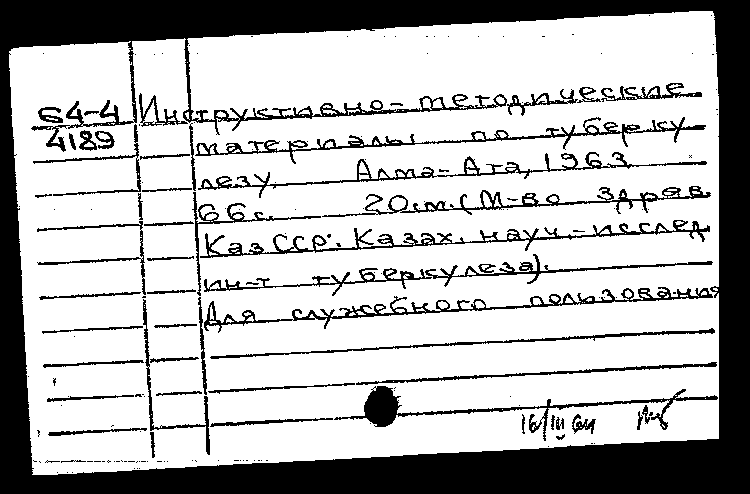 64-4 Инструктивно-методические
4189 материалы по туберку
лезу. Алма-Ата, 1963
66 с. 20 см. (М-во здрав.
КазССР. Казах. науч.-исслед.
ин-т туберкулеза).
Для служебного пользования
16/III 64